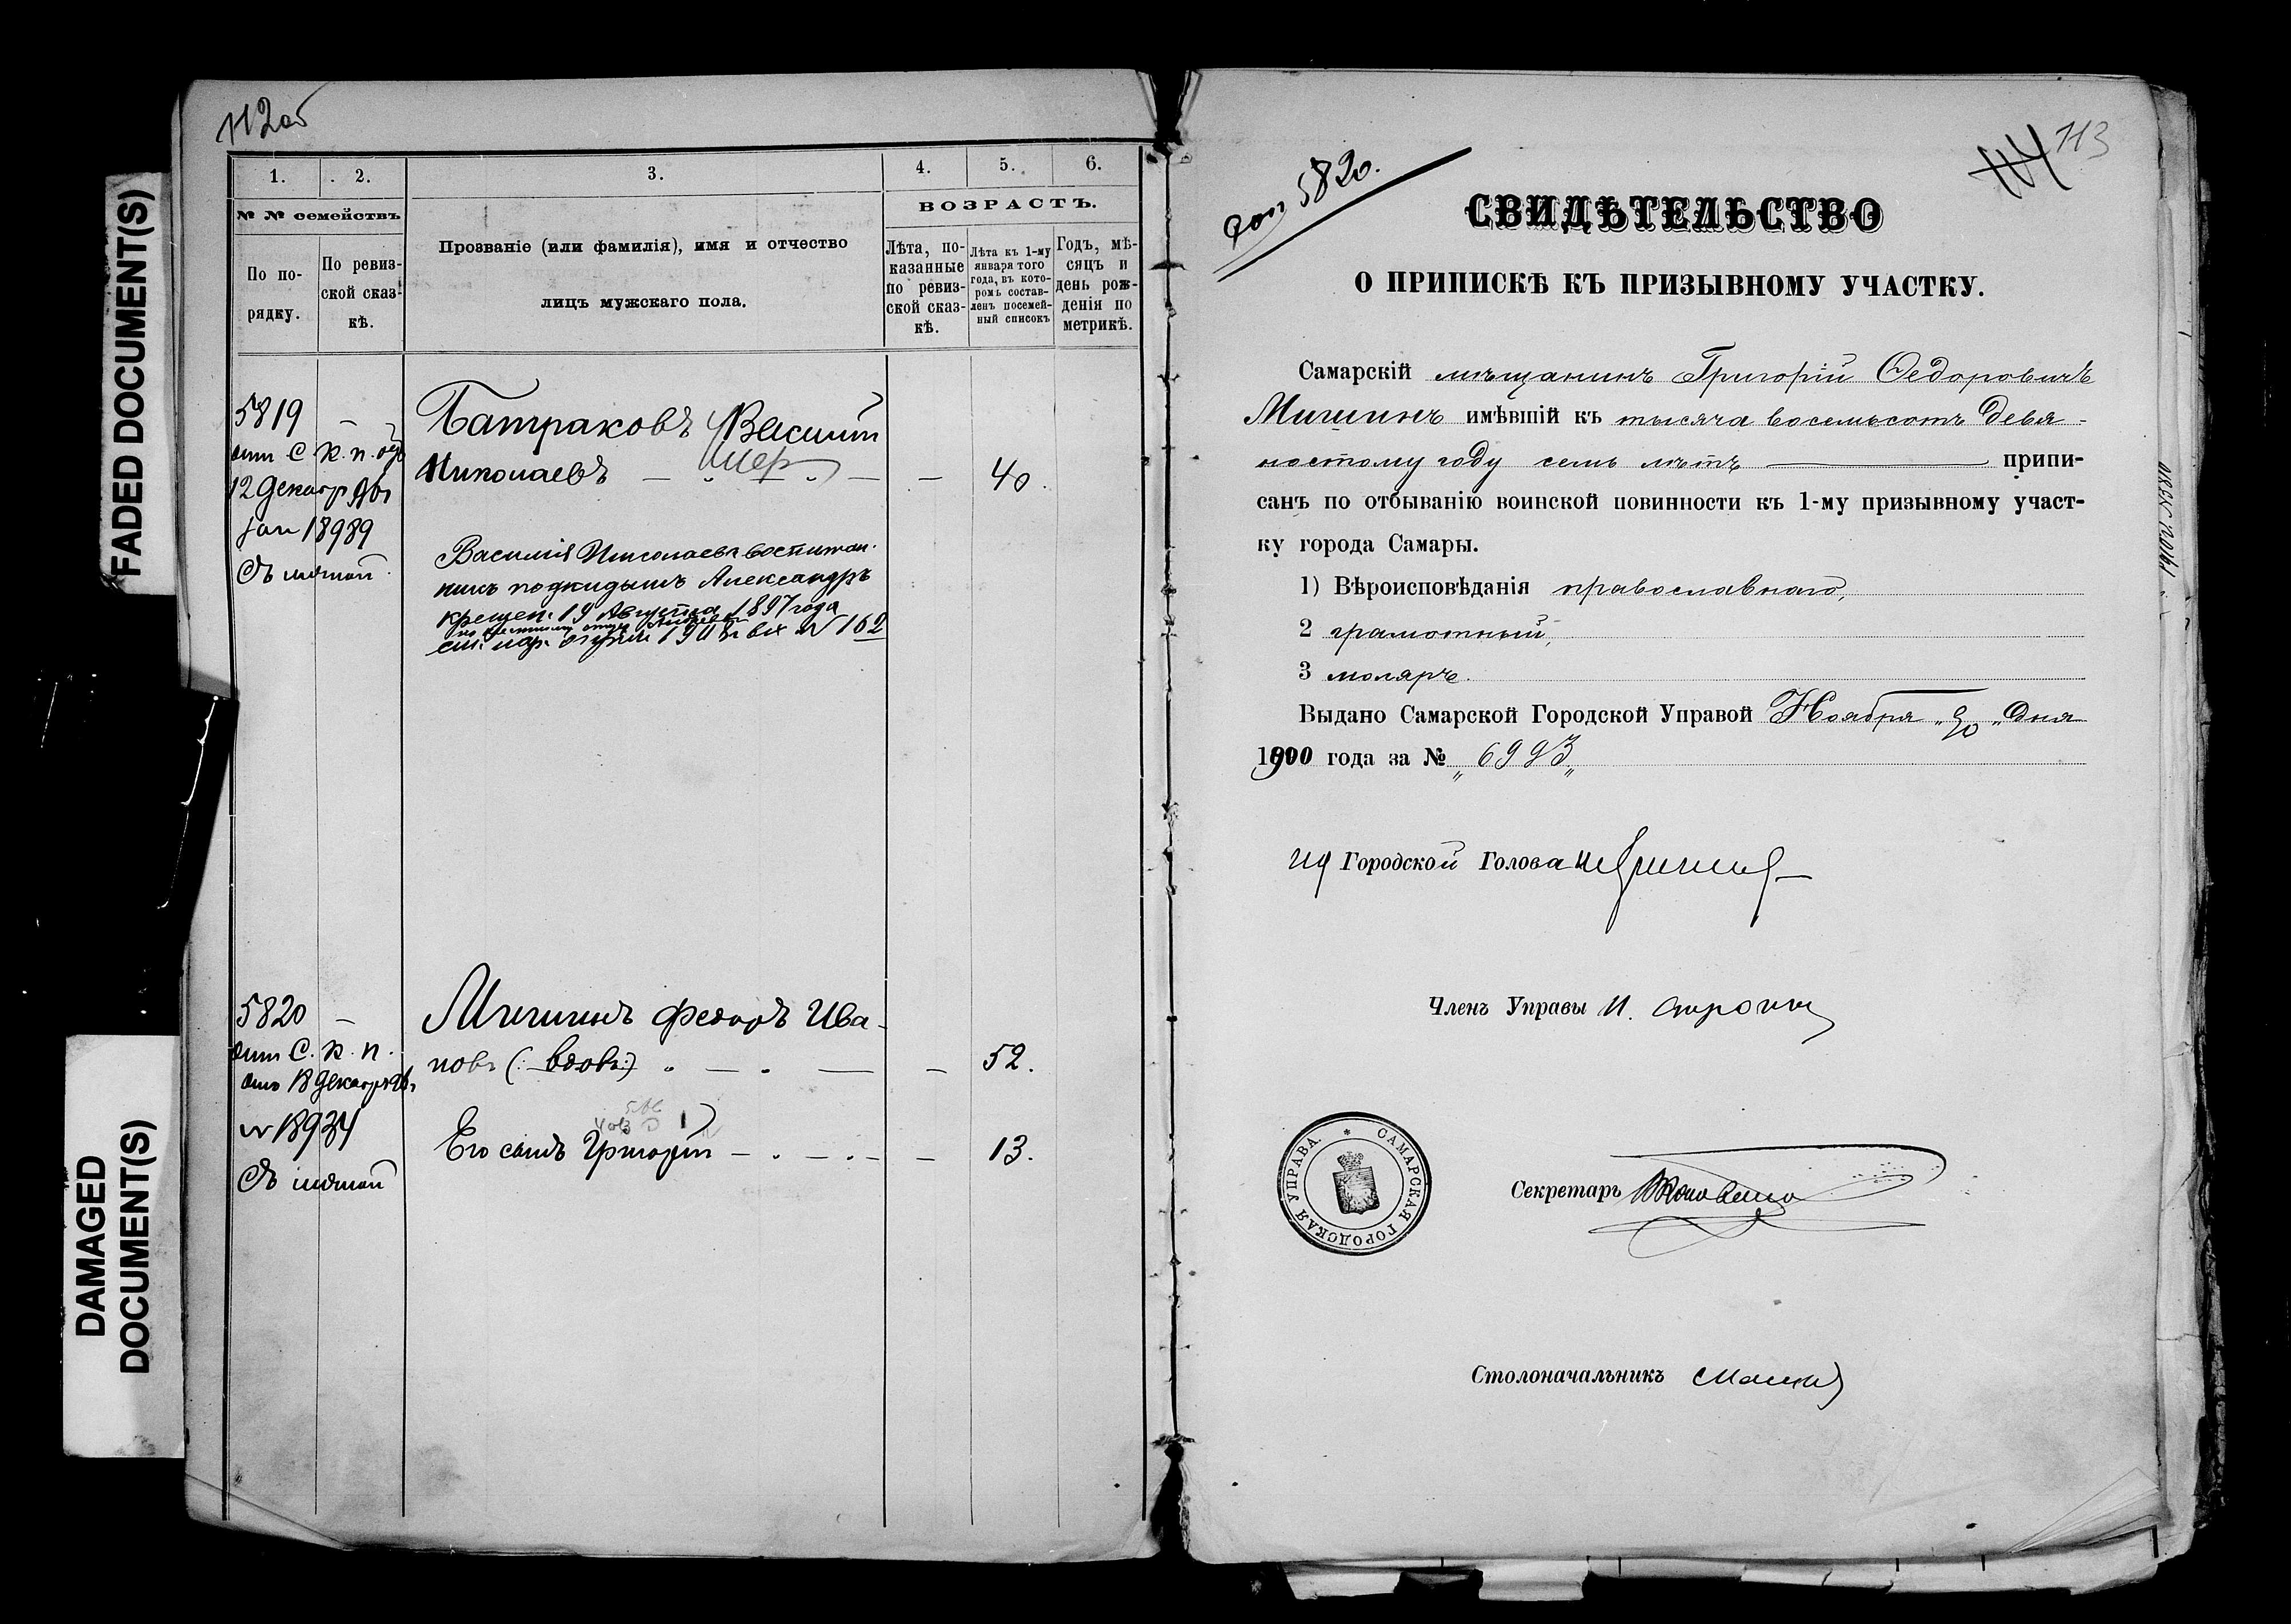 FADED DOCUMENT(S)
DAMAGED
DOCUMENT(S)
112об
1. 2. 3. 4. 5. 6.
№ № семействъ
ВОЗРАСТЪ.
По по-
рядку.
По ревиз-
ской сказ-
кѣ.
Прозваніе (или фамилія), имя и отчество
лицъ мужскаго пола.
Лѣта, по-
казанные
по ревиз-
ской сказ-
кѣ.
Лѣта къ 1-му
января того
года, въ кото-
ромъ состав-
ленъ посемей-
ный списокъ
Годъ, мѣ-
сяцъ и
день рож-
денія по
метрикѣ.
5819 —
С. К. п.
12 декабр 96г
18989
Съ женой
Батраковъ Василій
Николаевъ умер — 40.
Василія Николаева воспитан-
никъ подкидышъ Александръ
крещен. 19 Августа 1897 года
№ 162
5820 —
С. К. п.
18 декабр 96г
№ 18934
Съ женой
Мишинъ Федоръ Ива-
новъ (: вдовъ:) — 52.
Его сынъ Григорій — 13.
113
114
5820.
СВИДѢТЕЛЬСТВО
О ПРИПИСКѢ КЪ ПРИЗЫВНОМУ УЧАСТКУ.
Самарскій мѣщанинъ Григорій Ѳедоровичъ
Мишинъ имѣвшій къ тысяча восемьсотъ девя-
ностому году семь лѣтъ — припи-
санъ по отбыванію воинской повинности къ 1-му призывному участ-
ку города Самары.
1) Вѣроисповѣданія православнаго,
2 грамотный,
3 моляръ.
Выдано Самарской Городской Управой Ноября „20„ дня
1900 года за № „6993„
ИД Городской Голова
Членъ Управы И.
САМАРСКАЯ ГОРОДСКАЯ УПРАВА
Секретарь
Столоначальникъ